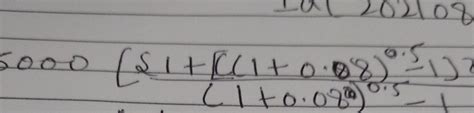 202108
5000 [{1+((1+0.08)^0.5-1)}
(1+0.08)^0.5-1